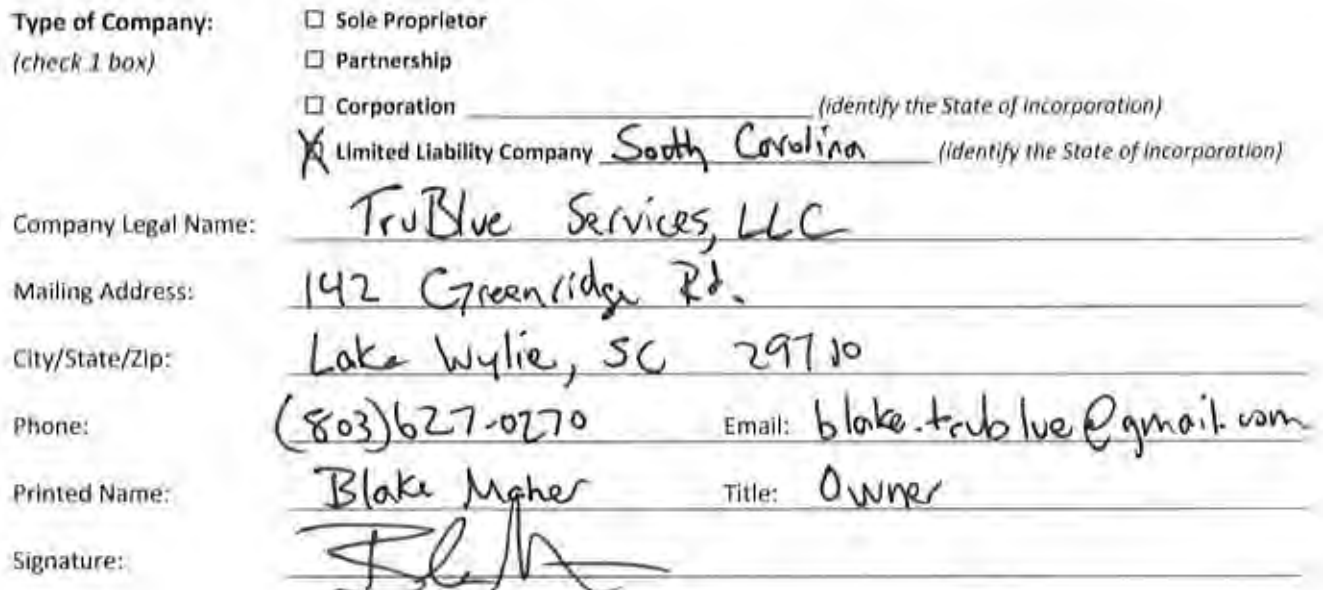 Type of Company: ☐ Sole Proprietor
(check 1 box) ☐ Partnership
☐ Corporation (identify the State of Incorporation)
☒ Limited Liability Company South Carolina (identify the State of Incorporation)
Company Legal Name: TruBlue Services, LLC
Mailing Address: 142 Greenridge Rd.
City/State/Zip: Lake Wylie, SC 29710
Phone: (803)627-0270 Email: blake.trublue@gmail.com
Printed Name: Blake Maher Title: Owner
Signature: